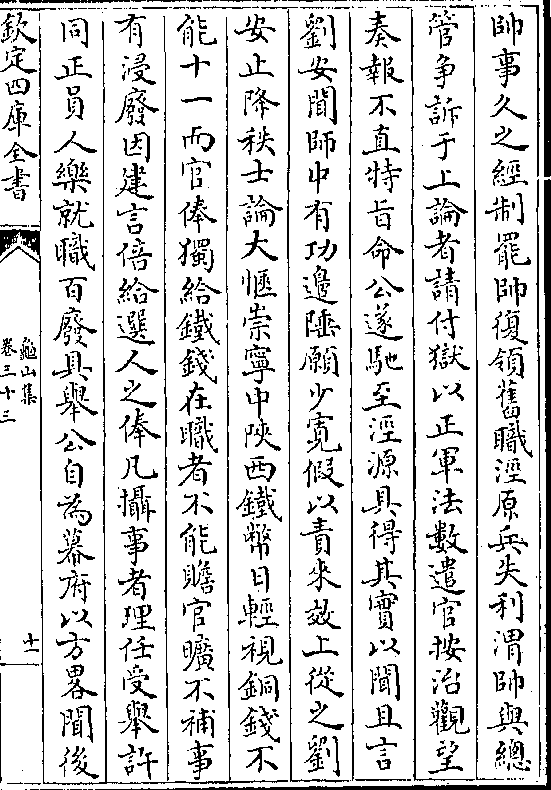 帥事久之經制罷帥復領舊職涇原兵失利渭帥與總
管爭訴于上論者請付獄以正軍法數遣官按治觀望
奏報不直特旨命公遂馳至涇源具得其實以聞且言
劉安聞師中有功邊陲願少寛假以責來效上從之劉
安止降秩士論大愜崇寧中陜西鐵幣日輕視銅錢不
能十一而官俸獨給鐵錢在職者不能贍官曠不補事
有浸廢因建言倍給選人之俸凡攝事者理任受舉許
同正員人樂就職百廢具舉公自為幕府以方畧聞後
欽定四庫全書
龜山集
卷三十三
十一